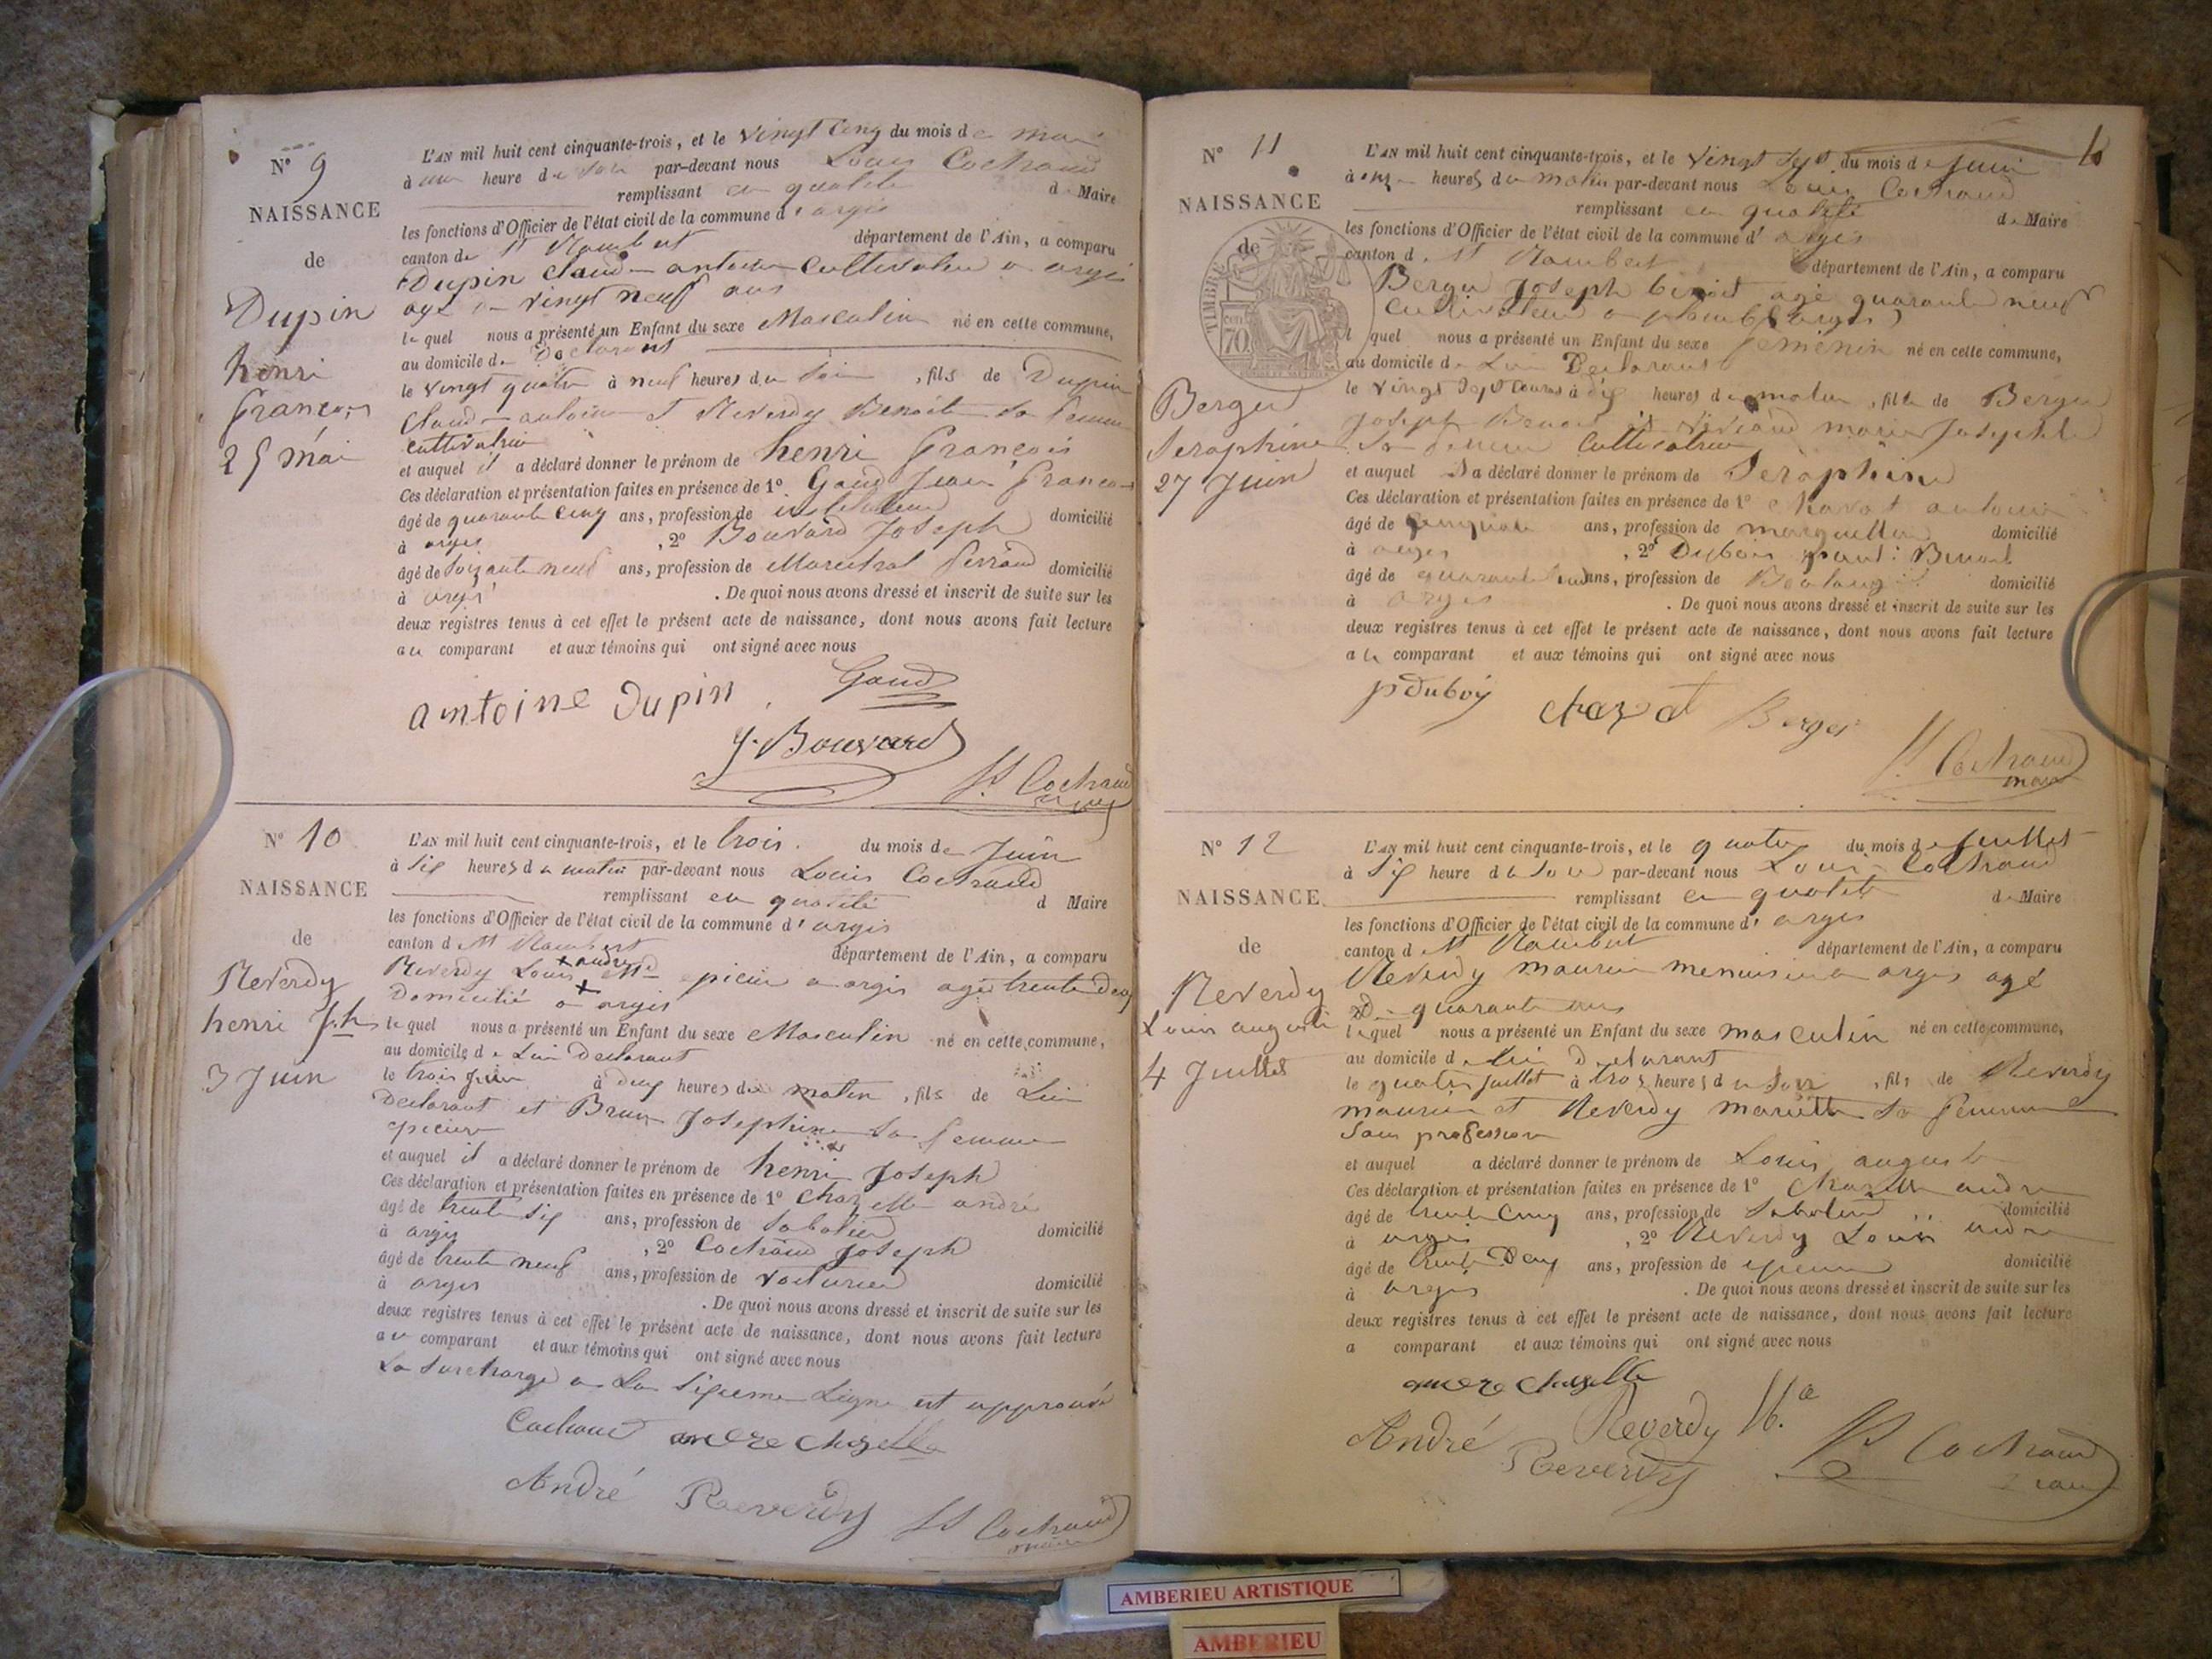 N° 9
NAISSANCE
de
Dupin
henri
françois
25 mai
L'AN mil huit cent cinquante-trois, et le vingt cinq du mois de mai
à une heure du soir par-devant nous Louis Cochraud
remplissant en qualité de Maire
les fonctions d'Officier de l'état civil de la commune d'argis
canton de St Rambert département de l'Ain, a comparu
Dupin claude antoine cultivateur a argis
agé de vingt neuf ans
le quel nous a présenté un Enfant du sexe Masculin né en cette commune,
au domicile du Declarant
le vingt quatre à neuf heures du soir, fils de Dupin
claude antoine et Reverdy Benoite sa femme
cultivatrice
et auquel il a déclaré donner le prénom de henri françois
Ces déclaration et présentation faites en présence de 1° Goud Jean françois
âgé de quarante cinq ans, profession de instituteur domicilié
à argis, 2° Bouvard Joseph
âgé de soixante neuf ans, profession de Marechal ferrand domicilié
à argis. De quoi nous avons dressé et inscrit de suite sur les
deux registres tenus à cet effet le présent acte de naissance, dont nous avons fait lecture
au comparant et aux témoins qui ont signé avec nous
antoine Dupin Goud
J. Bouvard
Ls Cochraud
N° 10
NAISSANCE
de
Reverdy
henri Jh
3 Juin
L'AN mil huit cent cinquante-trois, et le trois du mois de Juin
à six heures du matin par-devant nous Louis Cochraud
remplissant en qualité d Maire
les fonctions d'Officier de l'état civil de la commune d'argis
canton d St Rambert département de l'Ain, a comparu
Reverdy Louis andré epicier a argis agé trente deux
Domicilié a argis
le quel nous a présenté un Enfant du sexe Masculin né en cette commune,
au domicile de Lui Declarant
le trois Juin à deux heures du matin, fils de Lui
Declarant et Brun Josephine sa femme
epiciere
et auquel il a déclaré donner le prénom de henri Joseph
Ces déclaration et présentation faites en présence de 1° Chazelle andré
âgé de trente six ans, profession de sabotier domicilié
à argis, 2° Cochraud Joseph
âgé de trente neuf ans, profession de voiturier domicilié
à argis. De quoi nous avons dressé et inscrit de suite sur les
deux registres tenus à cet effet le présent acte de naissance, dont nous avons fait lecture
au comparant et aux témoins qui ont signé avec nous
La surcharge a La sixieme Ligne est approuvé
Cochraud andre chazelle
André Reverdy Ls Cochraud
maire
N° 11
NAISSANCE
de
TIMBRE
70
Berger
Seraphine
27 Juin
L'AN mil huit cent cinquante-trois, et le vingt sept du mois de Juin
à onze heures du matin par-devant nous Louis Cochraud
remplissant en qualité de Maire
les fonctions d'Officier de l'état civil de la commune d'argis
canton d St Rambert département de l'Ain, a comparu
Berger Joseph benoit agé quarante neuf
cultivateur a
l quel nous a présenté un Enfant du sexe femenin né en cette commune,
au domicile de Lui Declarant
le vingt sept courant à dix heures du matin, fille de Berger
Joseph Benoit et marie Josephte
sa femme cultivatrice
et auquel il a déclaré donner le prénom de Seraphine
Ces déclaration et présentation faites en présence de 1° Chavat antoine
âgé de cinquante ans, profession de domicilié
à argis, 2° Dubois Benoit
âgé de quarante ans, profession de domicilié
à argis. De quoi nous avons dressé et inscrit de suite sur les
deux registres tenus à cet effet le présent acte de naissance, dont nous avons fait lecture
a le comparant et aux témoins qui ont signé avec nous
p duboy Berger
Ls Cochraud
maire
N° 12
NAISSANCE
de
Reverdy
Louis auguste
4 Juillet
L'AN mil huit cent cinquante-trois, et le quatre du mois de Juillet
à six heure du soir par-devant nous Louis Cochraud
remplissant en qualité de Maire
les fonctions d'Officier de l'état civil de la commune d'argis
canton d St Rambert département de l'Ain, a comparu
Reverdy maurice menuisier a argis agé
De quarante ans
lequel nous a présenté un Enfant du sexe masculin né en cette commune,
au domicile de lui declarant
le quatre juillet à trois heures du soir, fils de Reverdy
maurice et Reverdy mariette sa femme
sans profession
et auquel a déclaré donner le prénom de Louis auguste
Ces déclaration et présentation faites en présence de 1° Chazelle andre
âgé de trente cinq ans, profession de sabotier domicilié
à argis, 2° Reverdy Louis andre
âgé de trente Deux ans, profession de epicier domicilié
à argis. De quoi nous avons dressé et inscrit de suite sur les
deux registres tenus à cet effet le présent acte de naissance, dont nous avons fait lecture
a comparant et aux témoins qui ont signé avec nous
andre chazelle
Reverdy Mce
André Reverdy
Ls Cochraud
maire
AMBERIEU ARTISTIQUE
AMBERIEU